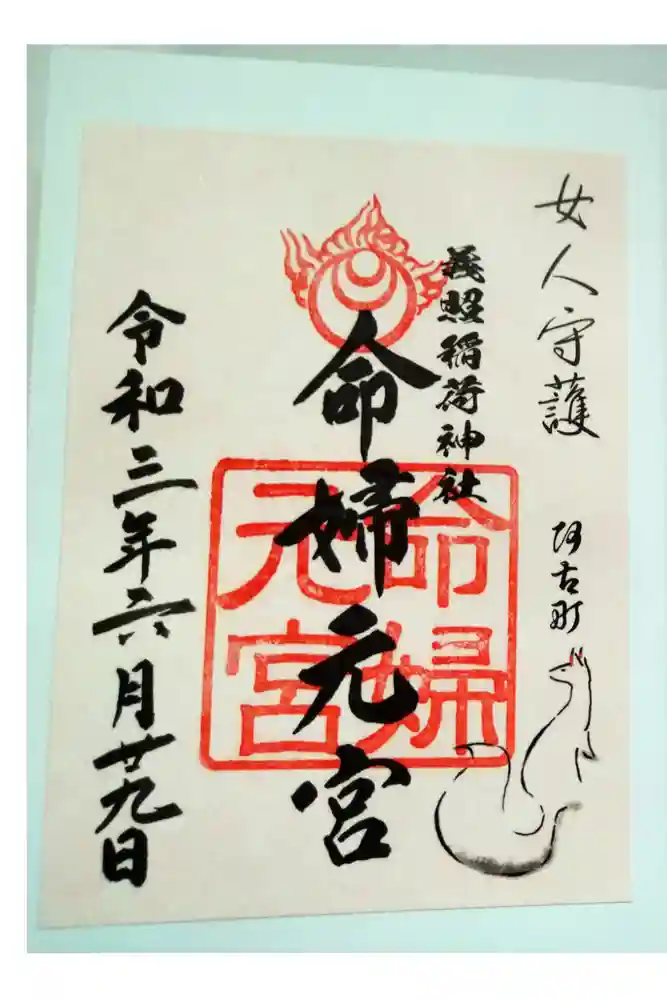 女人守護
阿古町
義照稲荷神社
命婦元宮
命婦
元宮
令和三年六月廿九日